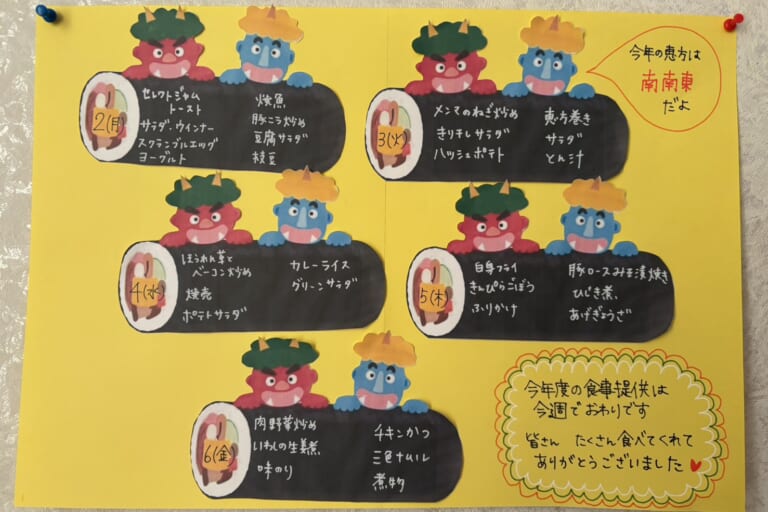 今年の恵方は
南南東
だよ
2(月)
セレクトジャム
トースト
サラダ・ウインナー
スクランブルエッグ
ヨーグルト
焼魚
豚ニラ炒め
豆腐サラダ
枝豆
3(火)
メンマのねぎ炒め
きり干しサラダ
ハッシュポテト
恵方巻き
サラダ
とん汁
4(水)
ほうれん草と
ベーコン炒め
焼売
ポテトサラダ
カレーライス
グリーンサラダ
5(木)
白身フライ
きんぴらごぼう
ふりかけ
豚ロースみそ漬焼き
ひじき煮
あげぎょうざ
6(金)
肉野菜炒め
いわしの生姜煮
味のり
チキンかつ
三色ナムル
煮物
今年度の食事提供は
今週でおわりです
皆さん たくさん食べてくれて
ありがとうございました